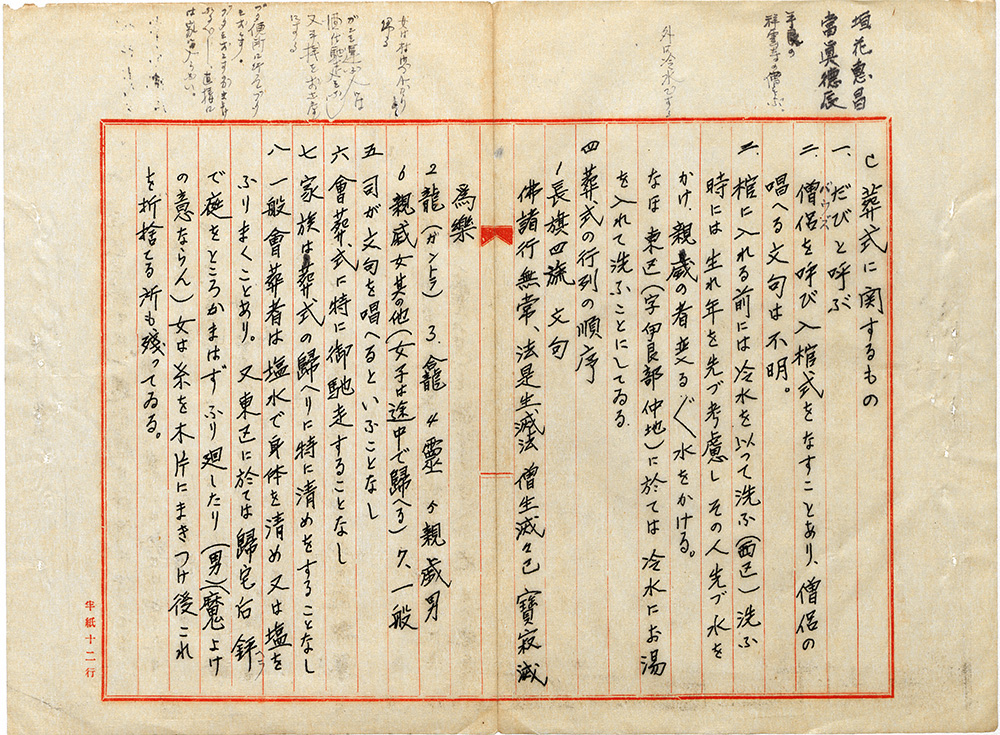 垣花惠昌
當眞德辰
祥雲寺の僧をよぶ
外は冷水です
C 葬式に関するもの
一、だびと呼ぶ
二、僧侶を呼び入棺式をなすことあり、僧侶の
唱へる文句は不明。
三、棺に入れる前には冷水を以って洗ふ(西区)洗ふ
時には生れ年を先づ考慮しその人先づ水を
かけ、親戚の者更る〲水をかける。
なほ東区(字伊良部仲地)に於ては冷水にお湯
を入れて洗ふことにしてゐる
四 葬式の行列の順序
1 長旗四流 文句
佛諸行無常、法是生滅法 僧生滅々已 寶寂滅
為樂
2 龍(ガントラ) 3、龕 4 靈 5 親戚男
6 親戚女其の他(女子は途中で歸へる)7、一般
五 司が文句を唱へるといふことなし
六 會葬式に特に御馳走することなし
七 家族は葬式の歸へりに特に清めをすることなし
八 一般會葬者は塩水で身体を清め又は塩を
ふりまくことあり。又東区に於ては歸宅后 鉾
で庭をところかまはずふり廻したり(男)(魔よけ
の意ならん)女は糸を木片にまきつけ後これ
を折捨てる所も残ってゐる。
半紙十二行